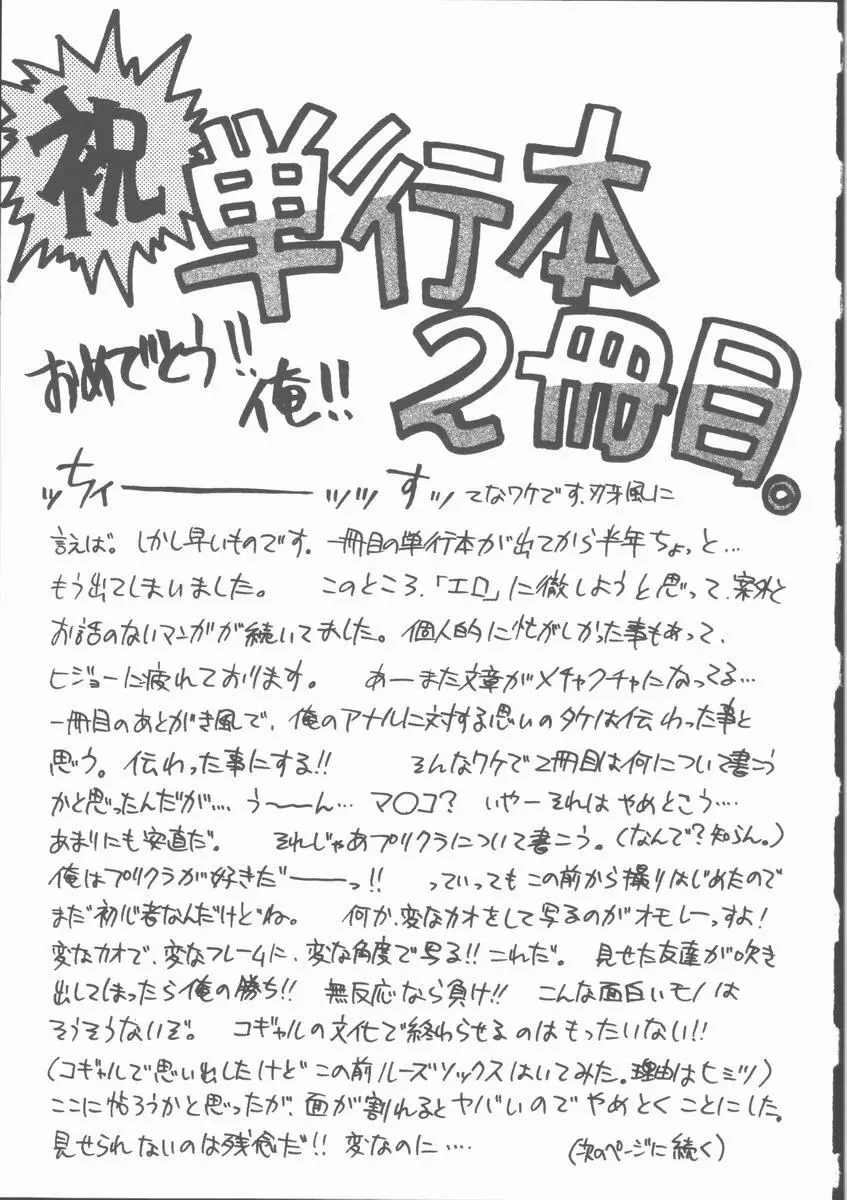 祝
単行本
2冊目。
おめでとう!!
俺!!
ッちィーーーーッッすッ てなワケです、刃牙風に
言えば。しかし早いものです。一冊目の単行本が出てから半年ちょっと…
もう出てしまいました。 このところ、「エロ」に徹しようと思って、案外と
お話のないマンガが続いてました。個人的に忙がしかった事もあって、
ヒジョーに疲れております。 あーまた文章がメチャクチャになってる…
一冊目のあとがき風で、俺のアナルに対する思いのタケは伝わった事と
思う。伝わった事にする!! そんなワケで2冊目は何について書こう
かと思ったんだが…、う〜〜ん… マ〇コ? いやーそれはやめとこう…
あまりにも安直だ。 それじゃあプリクラについて書こう。(なんで?知らん。)
俺はプリクラが好きだーーっ!! っていってもこの前から撮りはじめたので
まだ初心者なんだけどね。 何か、変なカオをして写るのがオモレーっすよ!
変なカオで、変なフレームに、変な角度で写る!!これだ。 見せた友達が吹き
出してしまったら俺の勝ち!! 無反応なら負け!! こんな面白いモノは
そうそうないぞ。 コギャルの文化で終わらせるのはもったいない!!
(コギャルで思い出したけどこの前ルーズソックスはいてみた。理由はヒミツ)
ここに帖ろうかと思ったが、面が割れるとヤバいのでやめとくことにした。
見せられないのは残念だ!! 変なのに…
(次のページに続く)